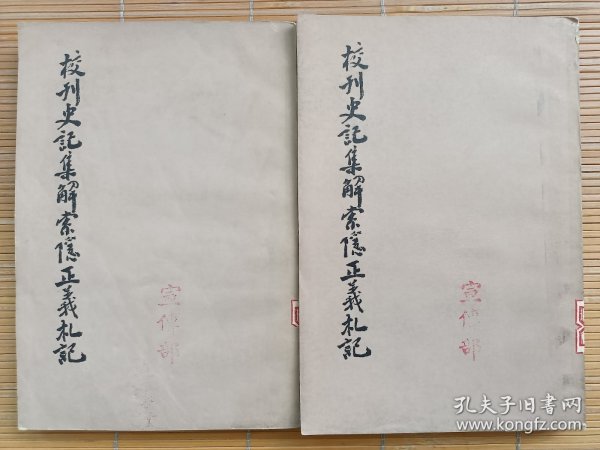 校刊史記集解索隱正義札記
宣傳部
校刊史記集解索隱正義札記
宣傳部
孔夫子旧书网
www.kongfz.com